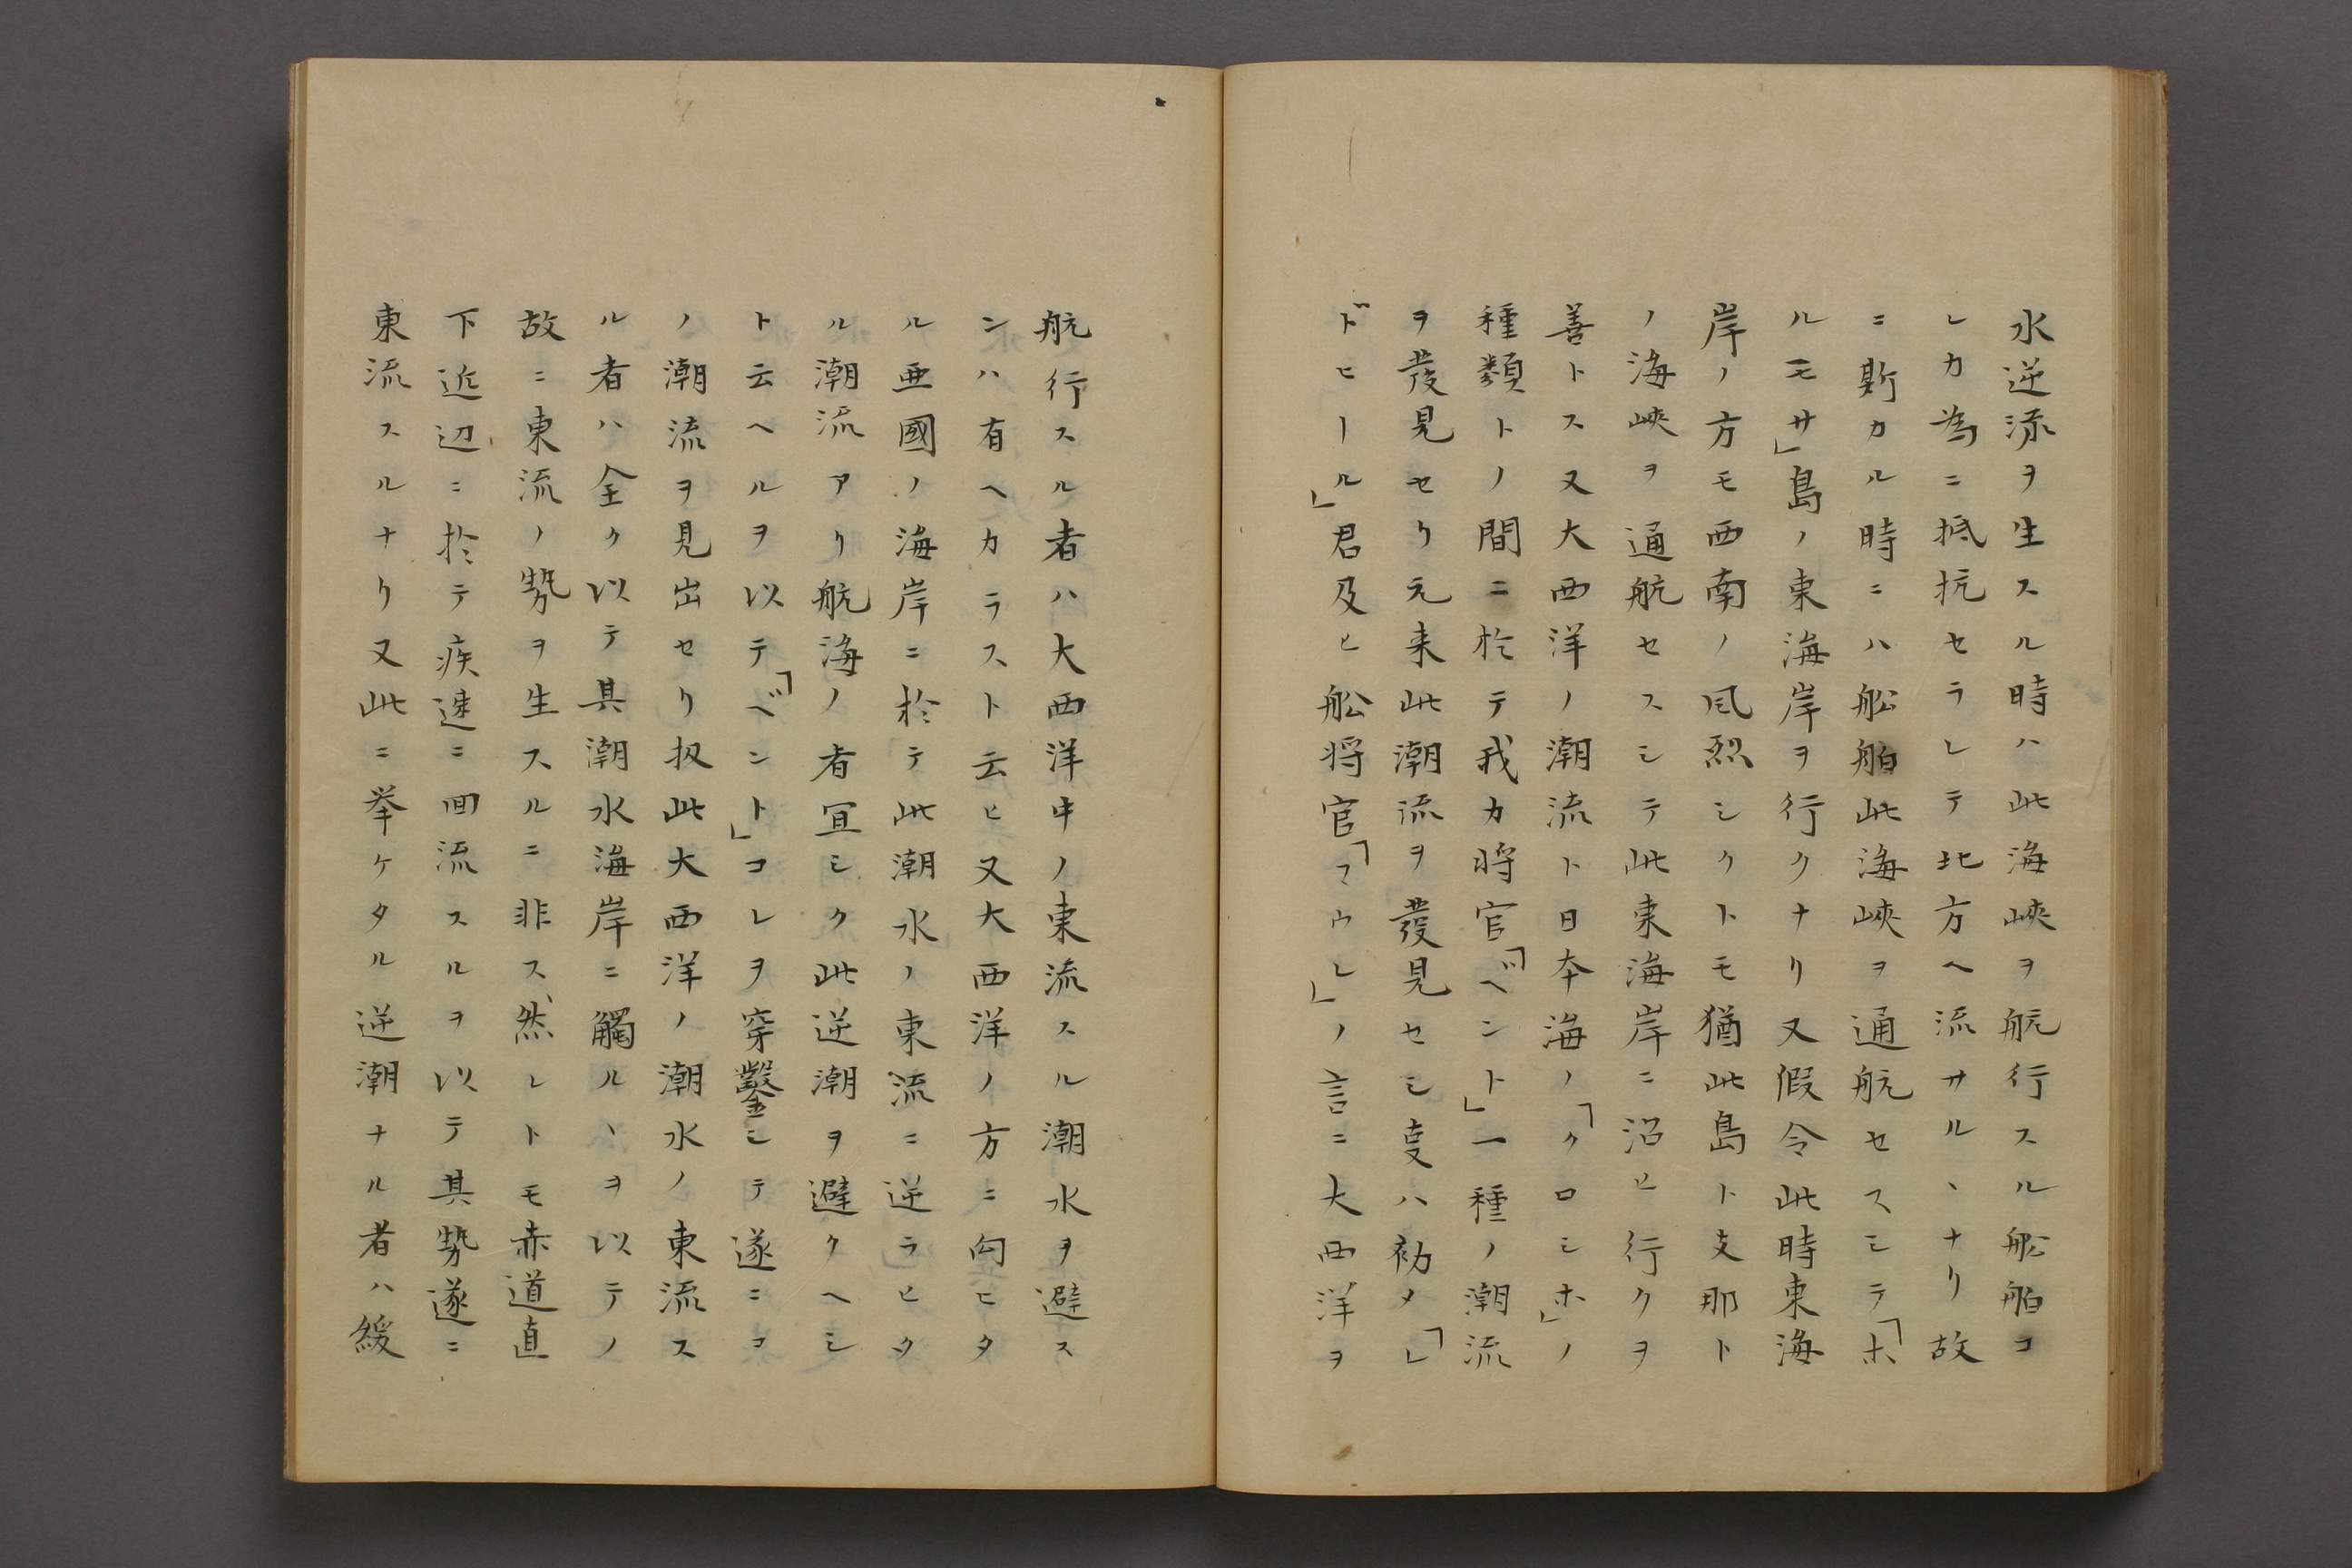 水逆流ヲ生スル時ハ此海峽ヲ航行スル舩舶コ
レカ為ニ抵抗セラレテ北方ヘ流サルヽナリ故
ニ斯カル時ニハ舩舶此海峽ヲ通航セスシテ「ホ
ルモサ」島ノ東海岸ヲ行クナリ又假令此時東海
岸ノ方モ西南ノ風烈シクトモ猶此島ト支那ト
ノ海峽ヲ通航セスシテ此東海岸ニ沿ヒ行クヲ
善トス又大西洋ノ潮流ト日本海ノ「クロシホ」ノ
種類トノ間ニ於テ我カ将官「ベント」一種ノ潮流
ヲ發見セリ元来此潮流ヲ發見セシ叓ハ初メ「レ
ドヒール」君及ヒ舩将官「マウレ」ノ言ニ大西洋ヲ
航行スル者ハ大西洋中ノ東流スル潮水ヲ避ス
ンハ有ヘカラスト云ヒ又大西洋ノ方ニ向ヒタ
ル亜國ノ海岸ニ於テ此潮水ノ東流ニ逆ラヒタ
ル潮流アリ航海ノ者宜シク此逆潮ヲ避クヘシ
ト云ヘルヲ以テ「ベント」コレヲ穿鑿シテ遂ニコ
ノ潮流ヲ見出セリ扨此大西洋ノ潮水ノ東流ス
ル者ハ全ク以テ其潮水海岸ニ觸ルヽヲ以テノ
故ニ東流ノ勢ヲ生スルニ非ス、然レトモ赤道直
下近辺ニ於テ疾速ニ回流スルヲ以テ其勢遂ニ
東流スルナリ又此ニ挙ケタル逆潮ナル者ハ緩